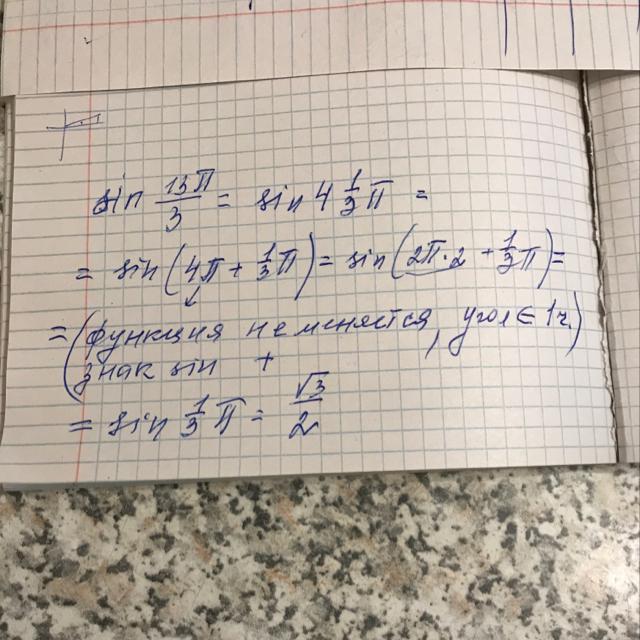 sin 13π/3 = sin 4 1/3 π =
= sin (4π + 1/3 π) = sin (2π · 2 + 1/3 π) =
= (функция не меняется, угол ∈ 1ч.)
знак sin +
= sin 1/3 π = √3/2